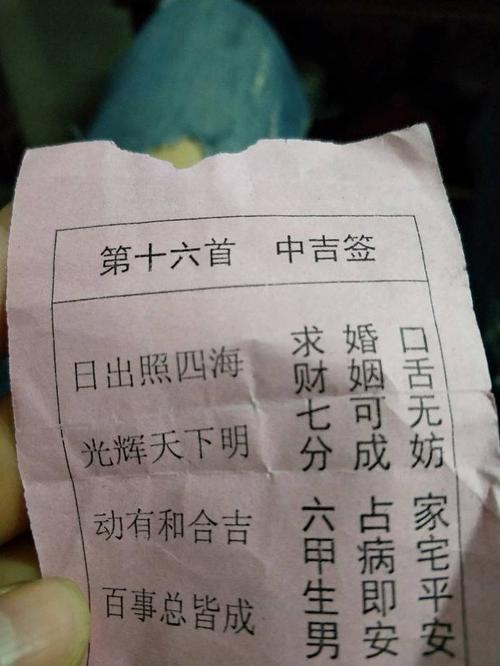 第十六首 中吉签
日出照四海
光辉天下明
动有和合吉
百事总皆成
口舌无妨
家宅平安
婚姻可成
占病即安
求财七分
六甲生男